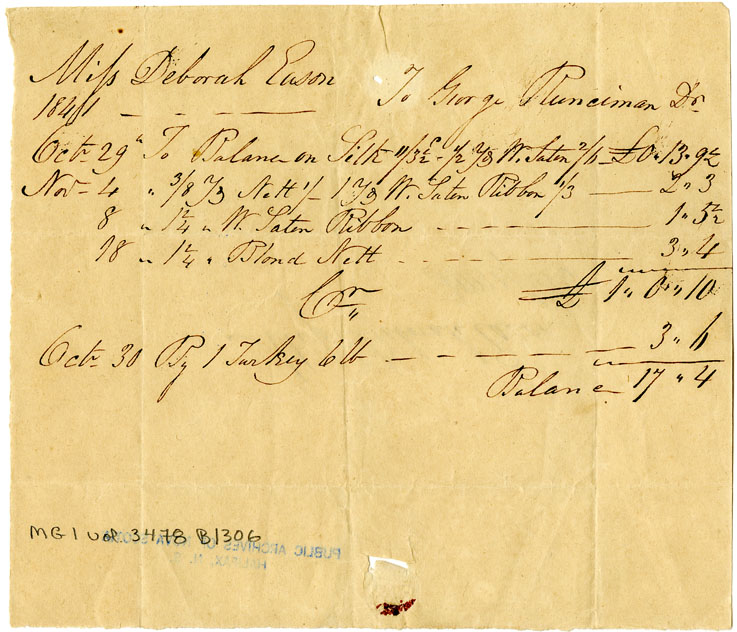 Miss Deborah Eason To George Runciman Dr
1841
Octr 29th To Balance on Silk 11/3½ - 1/2 Yd W. Saten 2/6 £0 " 13 " 9½
Nov - 4 " 3/8 Yd Nett 1/- 1 Yd W. Saten Ribbon 1/3 2 " 3
8 " 1¼ " W. Saten Ribbon 1 " 5½
18 " 1¼ " Blond Nett 3 " 4
£ 1 " 0 " 10
Cr
Octr 30 By 1 Turkey 6 lb 3 " 6
Balance 17 " 4
MG 1 Vol 3478 B1306
PUBLIC ARCHIVES OF NOVA SCOTIA
HALIFAX, N. S.